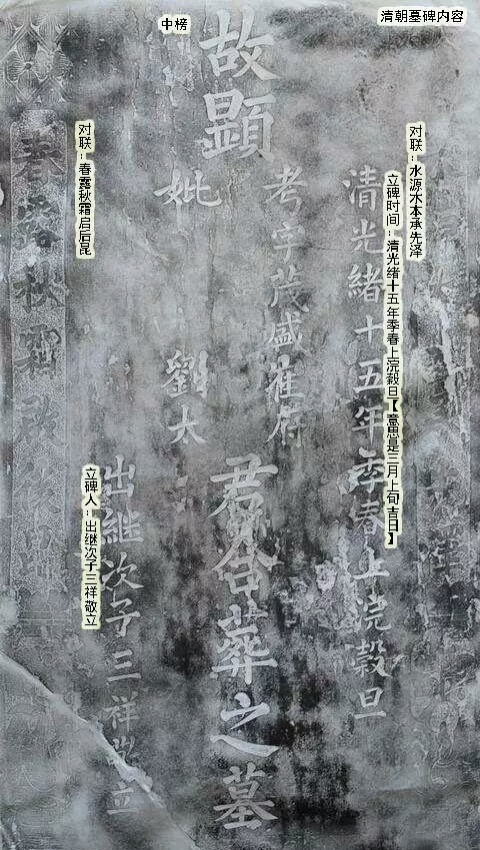 清朝墓碑内容
中榜
对联：水源木本承先泽
立碑时间：清光绪十五年季春上浣榖旦【意思是三月上旬吉日】
清光緒十五年季春上浣榖旦
故顯
考字茂盛崔府
妣 劉太
君合葬之墓
出继次子三祥敬立
立碑人：出继次子三祥敬立
对联：春露秋霜启后昆
春露秋霜啟後昆